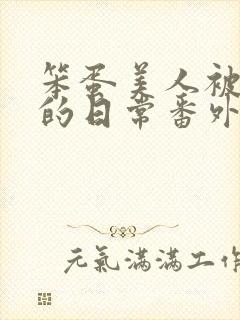 笨蛋美人被
的日常番外
元氣滿滿工作